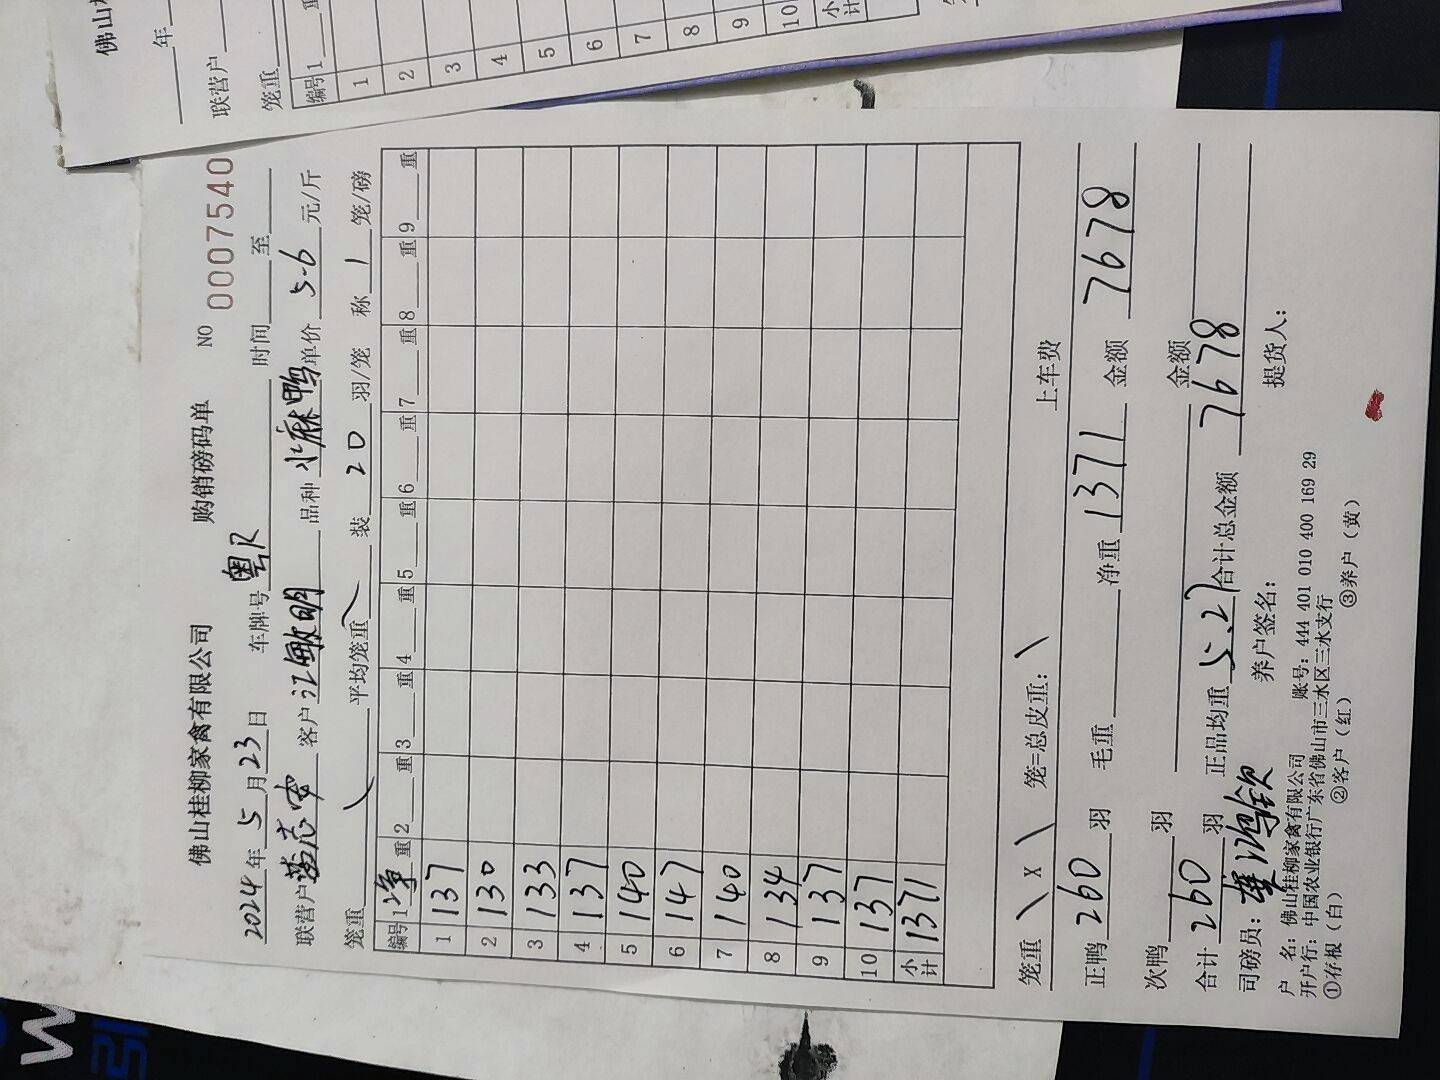 佛山桂柳家禽有限公司 购销磅码单 NO 0007540
2024年5月23日 车牌号 粤R 时间 至
联营户 志 客户 江敏明 品种 水麻鸭 单价 5.6 元/斤
笼重 平均笼重 装 20 羽/笼 称 1 笼/磅
编号 1净重 2 重 3 重 4 重 5 重 6 重 7 重 8 重 9 重
1 137
2 130
3 133
4 137
5 140
6 147
7 140
8 134
9 137
10 137
小计 1371
笼重 X 笼=总皮重: 上车费
正鸭 260 羽 毛重 净重 1371 金额 7678
次鸭 羽 金额
合计 260 羽 正品均重 5.27 合计总金额 7678
司磅员: 鸿钦 养户签名: 提货人:
户 名: 佛山桂柳家禽有限公司 账号: 444 401 010 400 169 29
开户行: 中国农业银行广东省佛山市三水区三水支行
①存根（白） ②客户（红） ③养户（黄）
佛山
年
联营户
笼重
编号 1
1
2
3
4
5
6
7
8
9
10
小计